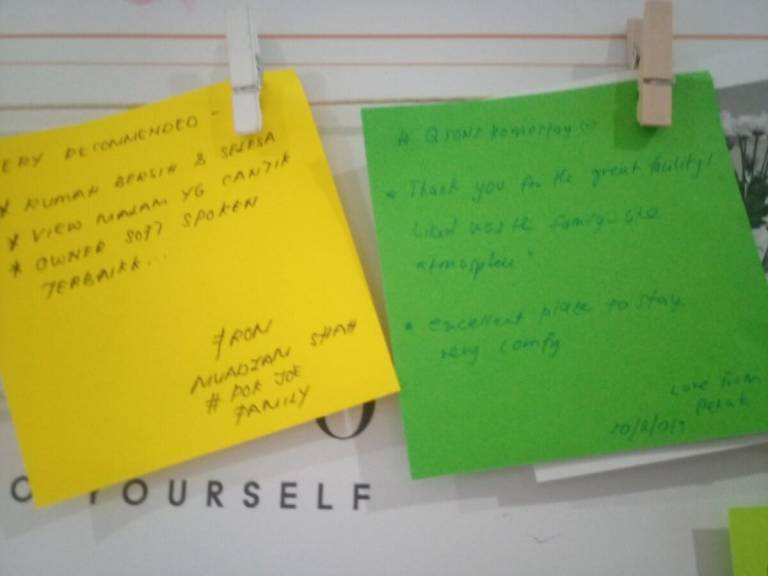 ERY RECOMMENDED -
* RUMAH BERSIH & SELESA
* VIEW MALAM YG CANTIK
* OWNER SOFT SPOKEN
TERBAIKK...
FROM
MUADZAM SHAH
# POK JOE
FAMILY
# Homestay
* Thank you for the great facility!
Liked was the family-like
atmosphere"
* excellent place to stay
very comfy
Love from
Perak
O
YOURSELF